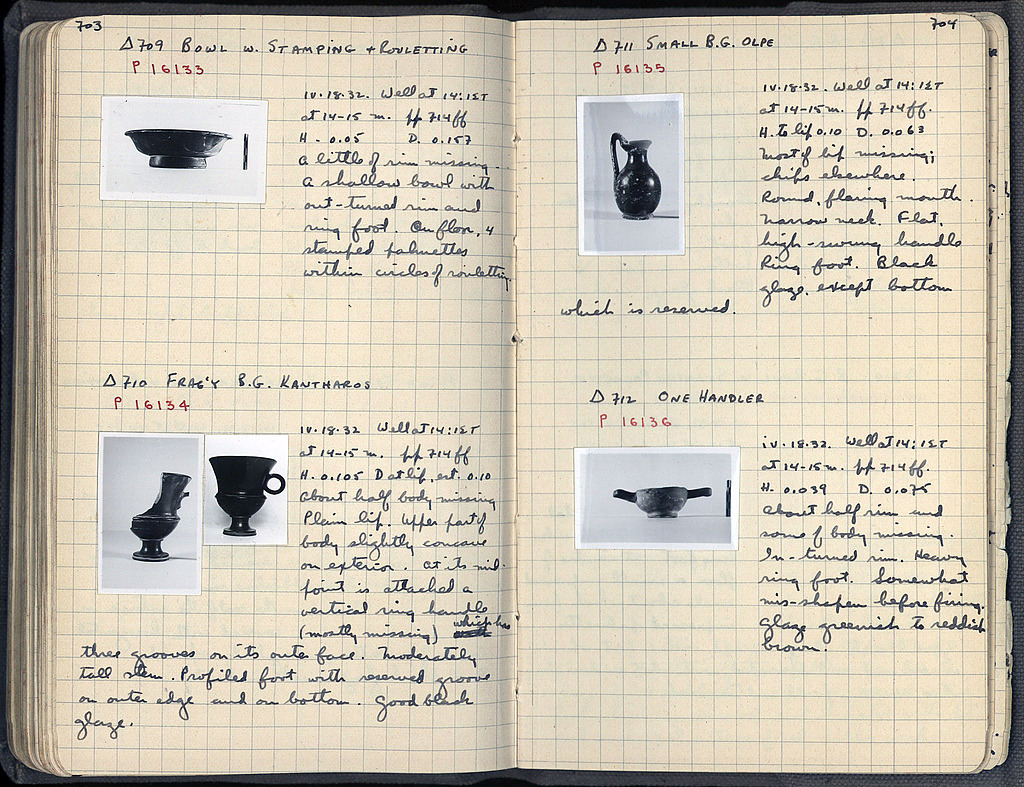 703
Δ 709 BOWL W. STAMPING + ROULETTING
P 16133
IV.18.32. Well at 14:ΙΣΤ
at 14-15 m. pp 714 ff
H. 0.05 D. 0.157
A little of rim missing.
A shallow bowl with
out-turned rim and
ring foot. On floor, 4
stamped palmettes
within circles of rouletting.
Δ 710 FRAG'Y B.G. KANTHAROS
P 16134
IV.18.32 Well at 14:ΙΣΤ
at 14-15 m. pp 714 ff
H. 0.105 D at lip, est. 0.10
About half body missing
Plain lip. Upper part of
body slightly concave
on exterior. At its mid-
point is attached a
vertical ring handle
(mostly missing) which has
three grooves on its outer face. Moderately
tall stem. Profiled foot with reserved groove
on outer edge and on bottom. Good black
glaze.
704
Δ 711 SMALL B.G. OLPE
P 16135
IV.18.32. Well at 14:ΙΣΤ
at 14-15 m. pp 714 ff.
H. to lip 0.10 D. 0.063
Most of lip missing;
chips elsewhere.
Round, flaring mouth.
Narrow neck. Flat,
high-swung handle
Ring foot. Black
glaze, except bottom
which is reserved.
Δ 712 ONE HANDLER
P 16136
IV.18.32. Well at 14:ΙΣΤ
at 14-15 m. pp 714 ff.
H. 0.039 D. 0.075
About half rim and
some of body missing.
In-turned rim. Heavy
ring foot. Somewhat
mis-shapen before firing.
Glaze greenish to reddish
brown.